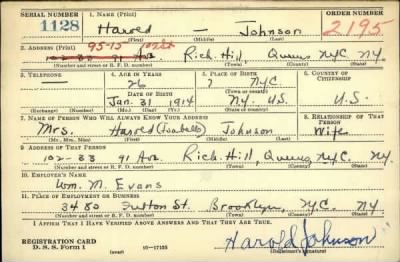 SERIAL NUMBER 1. NAME (Print) ORDER NUMBER
1128 Harold — Johnson 2195
(First) (Middle) (Last)
2. ADDRESS (Print) 95-15 102 St
102-33 91 Ave. Rich. Hill, Queens NYC NY.
(Number and street or R. F. D. number) (Town) (County) (State)
3. TELEPHONE 4. AGE IN YEARS 5. PLACE OF BIRTH 6. COUNTRY OF CITIZENSHIP
— 26 NYC
DATE OF BIRTH (Town or county)
Jan. 31 1914 NY. U.S. U.S.
(Exchange) (Number) (Mo.) (Day) (Yr.) (State or country)
7. NAME OF PERSON WHO WILL ALWAYS KNOW YOUR ADDRESS 8. RELATIONSHIP OF THAT PERSON
Mrs. Harold (Isabelle) Johnson Wife
(Mr., Mrs., Miss) (First) (Middle) (Last)
9. ADDRESS OF THAT PERSON
102-33 91 Ave. Rich. Hill, Queens NYC. NY.
(Number and street or R. F. D. number) (Town) (County) (State)
10. EMPLOYER'S NAME
Wm. M. Evans
11. PLACE OF EMPLOYMENT OR BUSINESS
Fulton St. Brooklyn, NYC. NY.
(Number and street or R. F. D. number) (Town) (County) (State)
I AFFIRM THAT I HAVE VERIFIED ABOVE ANSWERS AND THAT THEY ARE TRUE.
REGISTRATION CARD
D. S. S. Form 1 (over) 16—17105 Harold Johnson
(Registrant's signature)